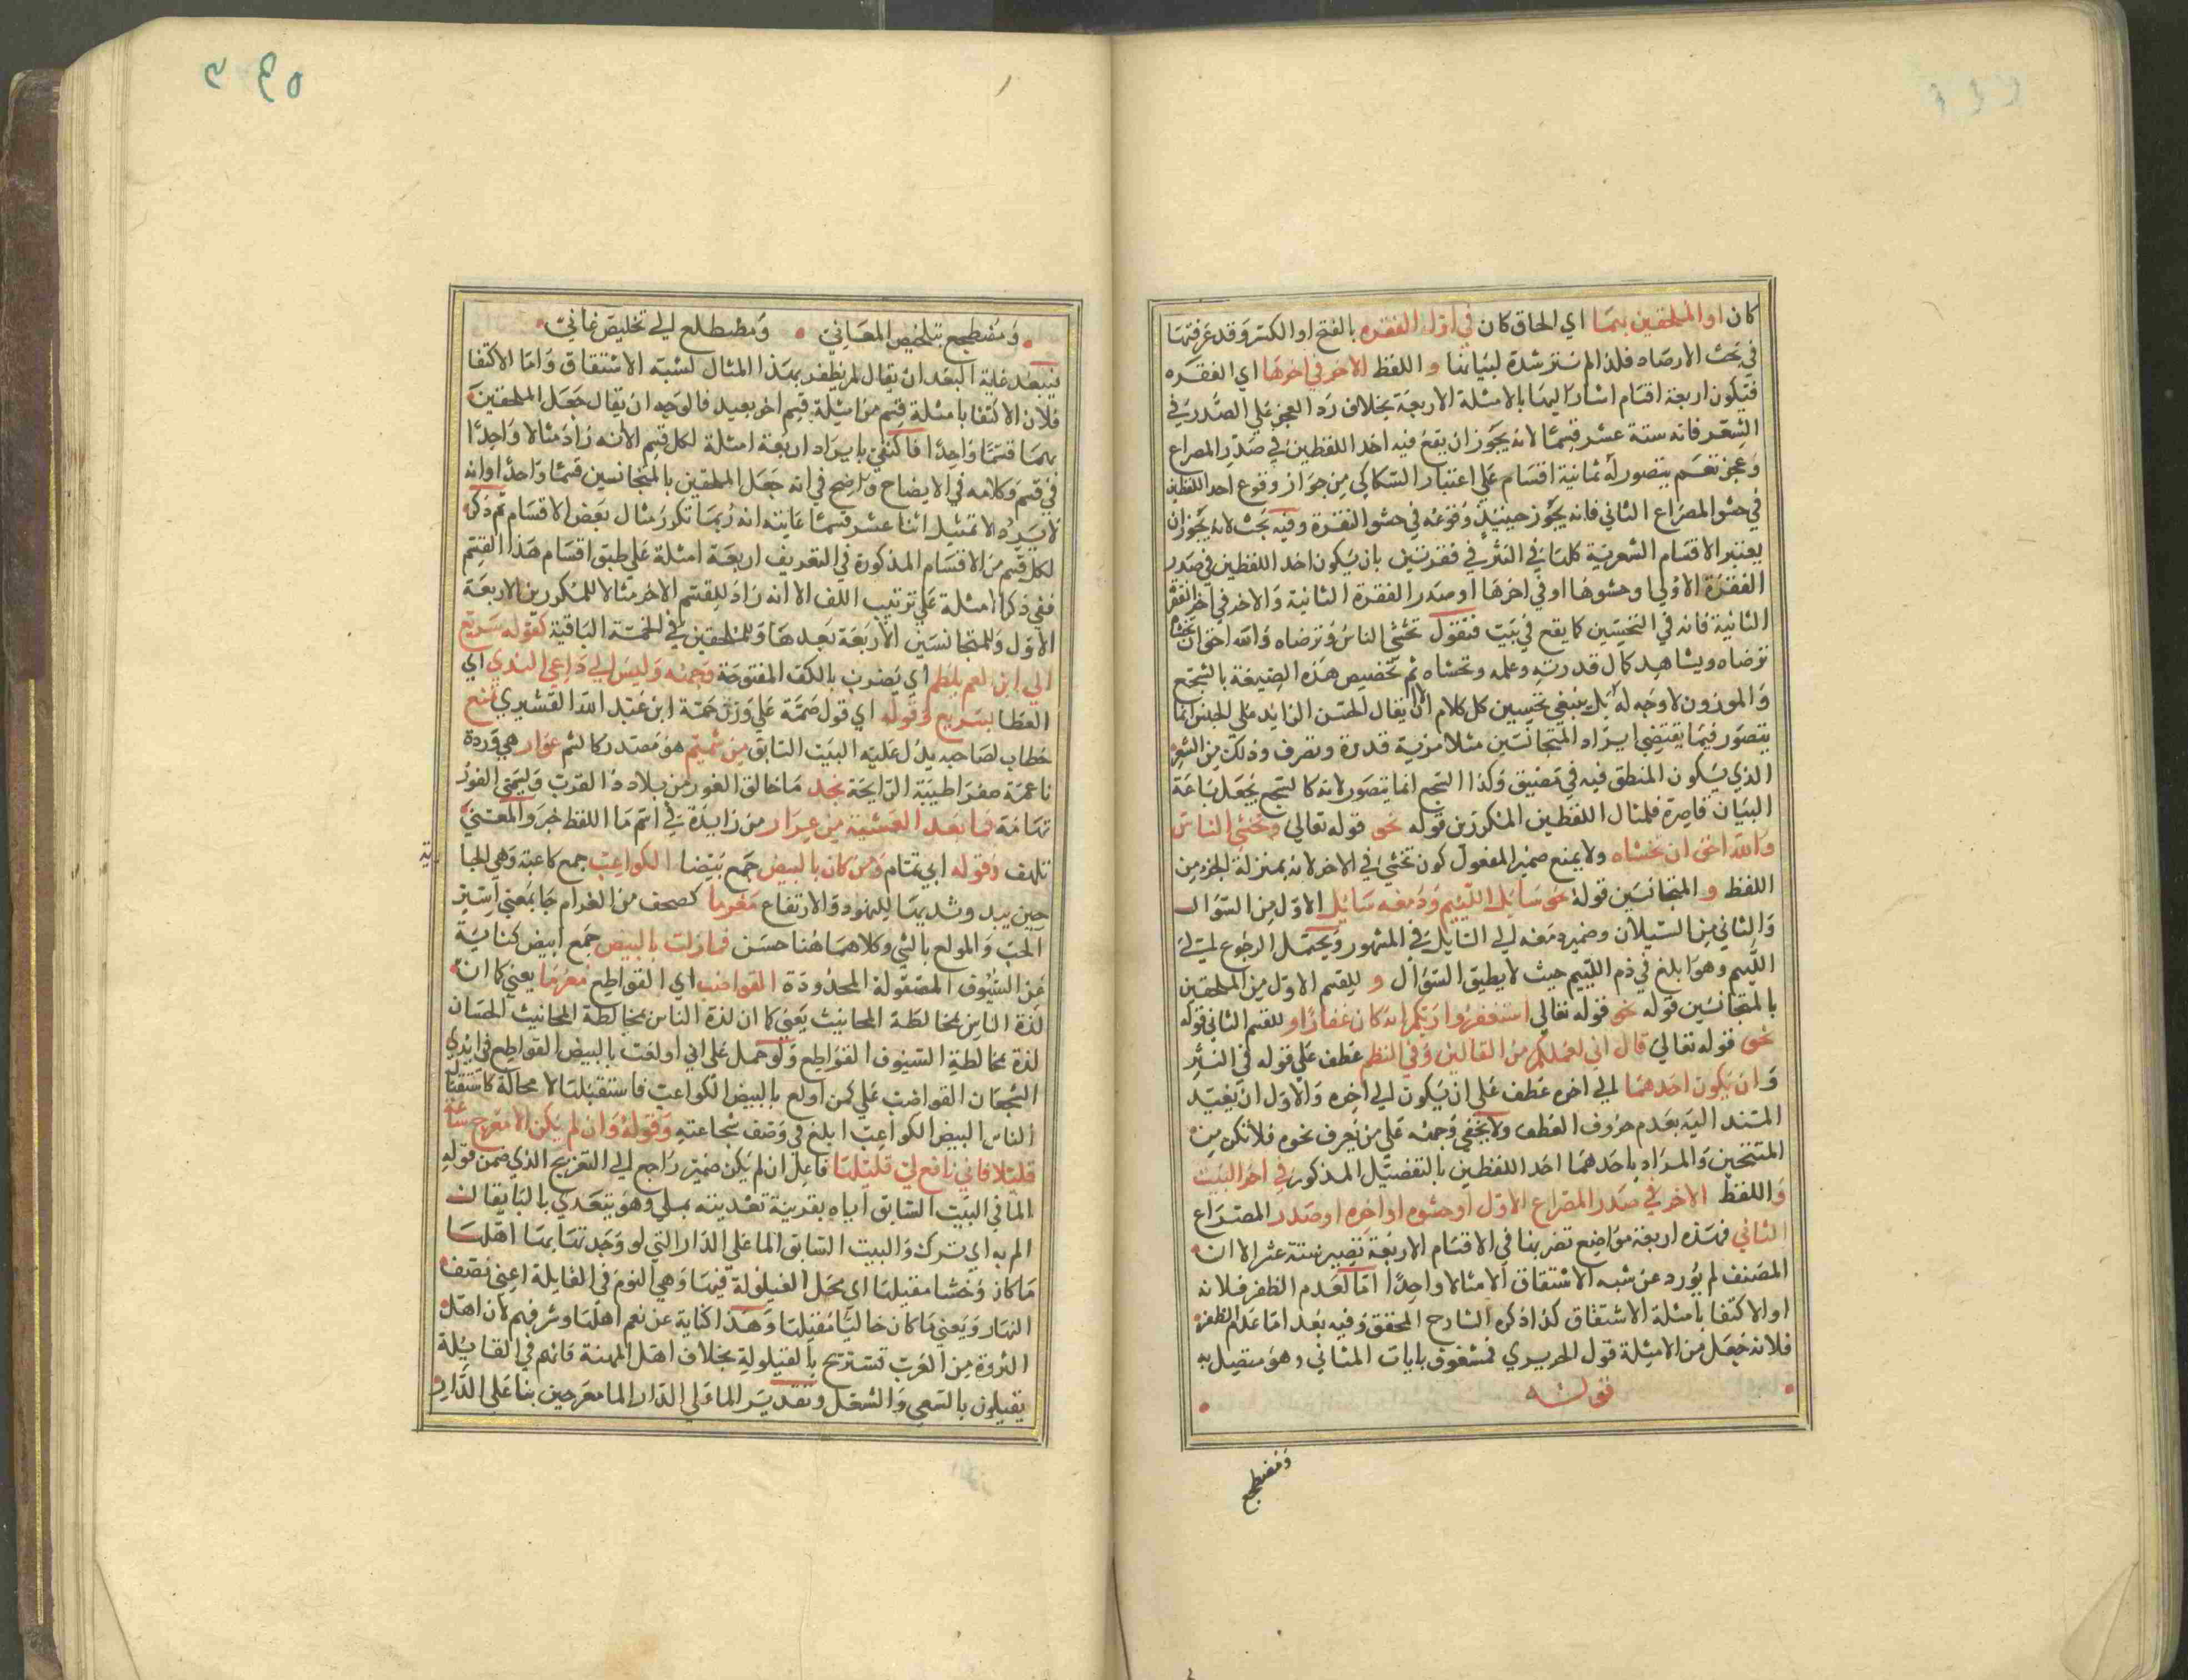 كان او الملحقين بهما اي الحاق كان في اول الفقره بالفتح او الكسر وقد عرفتها
في بحث الارصاد فلذا لم نر شدة لبيانها و اللفظ الاخر في اخرها اي الفقره
فتكون اربعة اقسام اشار اليها بالامثلة الاربعة بخلاف رد العجز علي الصدر في
الشعر فانه ستة عشر قسما لانه يجوز ان يقع فيه احد اللفظين في صدر المصراع
وعجز نعم يتصور له ثمانية اقسام علي اعتبار السكاكي من جواز وقوع احد اللفظين
في حشو المصراع الثاني فانه يجوز حينيذ وقوعه في حشو الفقرة وفيه بحث لانه يجوز ان
يعتبر الاقسام الشعرية كلها في النثر في فقرتين بان يكون احد اللفظين في صدر
الفقرة الاولي او حشوها او في اخرها او صدر الفقرة الثانية والاخر في اخر الفقرة
الثانية فانه في التحسين كما يقع في بيت فنقول تخشي الناس وترضاه والله احق ان تخشاه
ترضاه ويشاهد كمال قدرته وعلمه وتخشاه ثم تخصيص هذه الصيغة بالسجع
والموزون لا وجه له بل ينبغي تحسين كل كلام الا ان يقال الحسن الزايد علي الجنس انما
يتصور فيما يقتضي ايراد المتجانسين مثلا مزية قدرة وتصرف وذلك من الشعر
الذي يكون المنطق فيه في تضييق وكذا السجع انما يتصور لانه كالسجع يجعل ساعة
البيان قاصرة فلمثال اللفظين المتكررين قوله نحو قوله تعالي وتخشي الناس
والله احق ان تخشاه ولا يمنع ضمير المفعول كون تخشي في الاخر لانه بمنزلة الجزء من
اللفظ و المتجانسين قوله نحو سايل الليم ودمعه سايل الاول من السؤال
والثاني من السيلان وضمير دمعه الي السايل في المشهور ويحتمل الرجوع الي
الليم وهو ابلغ في ذم الليم حيث لا يطيق السؤال و للقسم الاول من الملحقين
بالمتجانسين قوله نحو قوله تعالي استغفروا ربكم انه كان غفارا و للقسم الثاني قوله
نحو قوله تعالي قال اني لعملكم من القالين وفي النظم عطف علي قوله في النثر
و ان يكون احدهما الي اخره عطف علي ان يكون الي اخره والاول ان يعيد
المسند اليه بعدم حروف العطف ولا يخفي وجهه علي من يعرف نحوه فلا تكن من
المتنحين والمراد باحدهما احد اللفظين بالتفصيل المذكور في اخر البيت
واللفظ الاخر في صدر المصراع الاول او حشوه او اخره او صدر المصراع
الثاني فهذه اربعة مواضع تضربها في الاقسام الاربعة تصير ستة عشر الا ان
المصنف لم يورد عن شبه الاشتقاق الا مثالا واحدا اما لعدم الظفر فلانه
او الاكتفا بامثلة الاشتقاق كذا ذكره الشارح المحقق وفيه بعد اما عدم الظفر
فلانه جعل من الامثلة قول الحريري فمشغوف بايات المثاني وهو متصل به
قوله
ومضطجع
ومضطجع بتلخيص المعاني ومضطلع الي تخليص عاني
فيبعد غاية البعد ان يقال لم يظفر بهذا المثال لشبه الاشتقاق واما الاكتفا
فلان الاكتفا بامثلة قسم من امثلة قسم اخر بعيد فالوجه ان يقال جعل الملحقين
بهما قسما واحدا فاكتفي بايراد اربعة امثلة لكل قسم الا انه زاد مثالا واحدا
في قسم وكلامه في الايضاح واضح في انه جعل الملحقين بالمتجانسين قسما واحدا او انه
لا يرد الا تمثيل اثنا عشر قسما غايته انه ربما تكرر مثال بعض الاقسام ثم ذكر
لكل قسم من الاقسام المذكورة في التعريف اربعة امثلة علي طبق اقسام هذا القسم
ففي ذكر امثلة علي ترتيب اللف الا انه زاد للقسم الاخر مثالا للمكررين الاربعة
الاول وللمتجانسين الاربعة بعدها وللملحقين في الخمسة الباقية كقوله سريع
الي ابن العم يلطم اي يضرب بالكف المفتوحة وجهه وليس الي داعي الندي اي
العطا بسريع وقوله اي قول صمة علي وزن همة ابن عبد الله القشيري تمتع
خطاب لصاحبه يدل عليه البيت السابق من شميم هو مصدر كالشم عرار هي وردة
ناعمة صفرا طيبة الرايحة نجد ما خالق الغور من بلاد ذا القرب ويسمي الغور
تهامة فما بعد العشية من عرار من زايدة في اسم ما اللفظ خبر والمعني
تلهف وقوله ابي تمام ومن كان بالبيض جمع بيضا الكواعب جمع كاعبة وهي الجا
رية
حين يبدو ثديها للنهود والارتفاع مغرما كصحف من الغرام جا بمعني اسير
الحب والمولع بالشي وكلاهما هنا حسن فما زلت بالبيض جمع ابيض كناية
عن السيوف المصقولة المحدودة القواضب اي القواطع مغرما يعني كما ان
لذة الناس بمخالطة المحابيث يعني كما ان لذة الناس بمخالطة المحانيث الحسان
لذة مخالطة السيوف القواطع ولو حمل علي اني اولعت بالبيض القواطع في ايدي
الشجعان القواضب علي كمن اولع بالبيض الكواعب فاستقبلتها لا محالة كاستقبال
الناس البيض الكواعب ابلغ في وصف شجاعته وقوله وان لم يكن الا معرج ساعة
قليلا فاني نافع لي قليلها فاعل ان لم يكن ضمير راجع الي التعريج الذي ضمن قوله
الما في البيت السابق اياه بقرينة تعديته بعلي وهو يتعدي بالبا يقال
الم به اي ترك والبيت السابق الما علي الدار التي لو وجدتها بها اهلها
ما كان وحشا مقيلها اي محل القيلولة فيها وهي النوم في القايلة اعني نصف
النهار ويعني ما كان خاليا مقيلها وهذا كناية عن نعم اهلها وشرفهم لان اهل
الثروة من العرب تستريح بالقيلولة بخلاف اهل المهنة فانهم في القايلة
يقيلون بالسعي والشغل وتقدير الما علي الدار الما معرجين بنا علي الدار